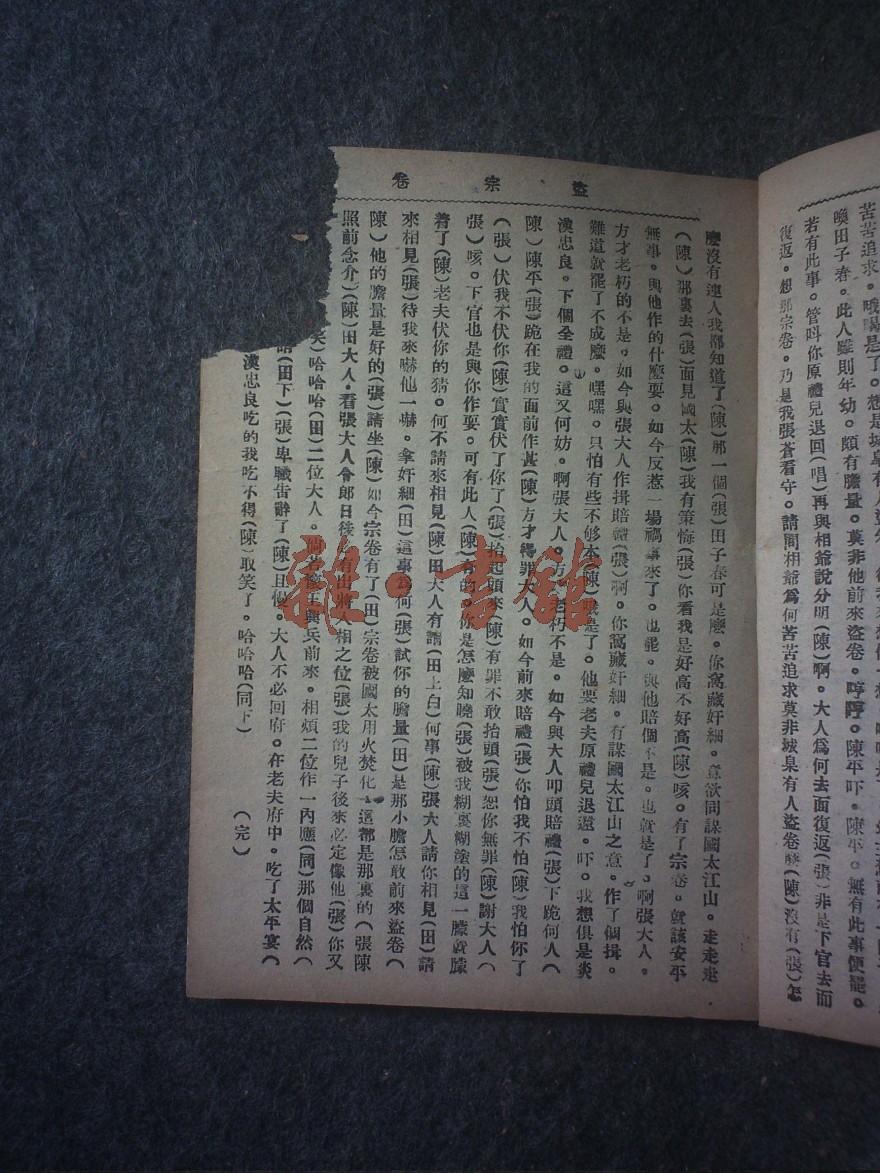 苦苦追求。
喚田子春。此人雖則年幼。頗有膽量。莫非他前來盜卷。哼哼。陳平吓。陳平。無有此事便罷。
若有此事。管叫你原禮兒退回(唱)再與相爺說分明(陳)啊。大人爲何去而復返(張)非是下官去而
復返。想那宗卷。乃是我張蒼看守。請問相爺爲何苦苦追求莫非城臯有人盜卷麼(陳)沒有(張)怎
盜宗卷
麼沒有連人我都知道了(陳)那一個(張)田子春可是麼。你窩藏奸細。意欲同謀國太江山。走走走
(陳)那裏去(張)面見國太(陳)我有策悔(張)你看我是好高不好高(陳)咳。有了宗卷。就該安平
無事。與他作的什麼耍。如今反惹一場禍事來了。也罷。與他賠個不是。也就是了。啊張大人。
方才老朽的不是。如今與張大人作揖賠禮(張)啊。你窩藏奸細。有謀國太江山之意。作了個揖。
難道就罷了不成麼。嘿嘿。只怕有些不够本(陳)哦是了。他要老夫原禮兒退還。吓。我想俱是炎
漢忠良。下個全禮。這又何妨。啊張大人。方才老朽不是。如今與大人叩頭賠禮(張)下跪何人(
陳)陳平(張)跪在我的面前作甚(陳)方才得罪大人。如今前來賠禮(張)你怕我不怕(陳)我怕你了
(張)伏我不伏你(陳)實實伏了你了(張)抬起頭來(陳)有罪不敢抬頭(張)恕你無罪(陳)謝大人(
張)咳。下官也是與你作耍。可有此人(陳)有的。你是怎麼知曉(張)被我糊裏糊塗的這一朦就朦
着了(陳)老夫伏你的猜。何不請來相見(陳)田大人有請(田上白)何事(陳)張大人請你相見(田)請
來相見(張)待我來嚇他一嚇。拿奸細(田)這事爲何(張)試你的膽量(田)是那小膽怎敢前來盜卷(
陳)他的膽量是好的(張)請坐(陳)如今宗卷有了(田)宗卷被國太用火焚化。這都是那裏的(張陳
照前念介)(陳)田大人。看張大人令郎日後必有出將入相之位(張)我的兒子後來必定像他(張)你又
笑)哈哈哈(田)二位大人。倘若淮王興兵前來。相煩二位作一內應(同)那個自然(
請(田下)(張)卑職告辭了(陳)且慢。大人不必回府。在老夫府中。吃了太平宴(
漢忠良吃的我吃不得(陳)取笑了。哈哈哈(同下)
(完)
雜·書館